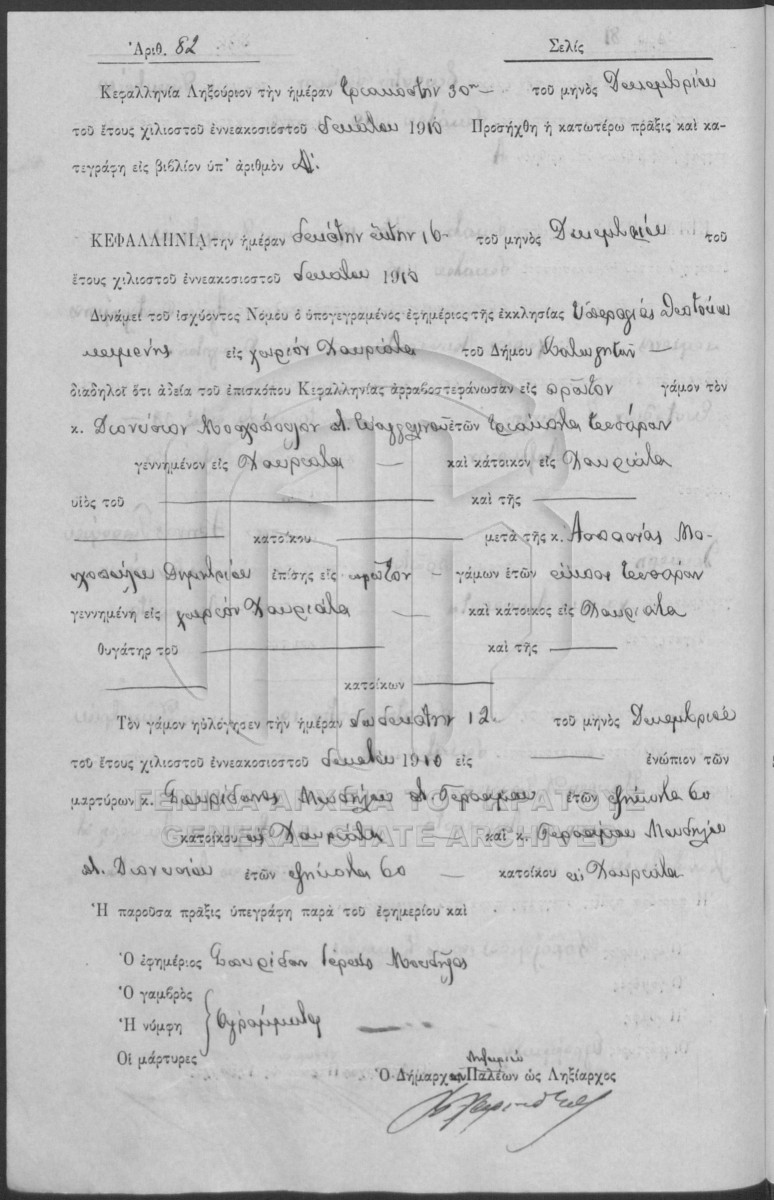 Ἀριθ. 82 Σελίς
Κεφαλληνία Ληξούριον τὴν ἡμέραν τριακοστήν 30ην τοῦ μηνὸς Δεκεμβρίου
τοῦ ἔτους χιλιοστοῦ ἐννεακοσιοστοῦ δεκάτου 1910 Προσήχθη ἡ κατωτέρω πρᾶξις καὶ κα-
τεγράφη εἰς βιβλίον ὑπ' ἀριθμὸν Α'.
ΚΕΦΑΛΛΗΝΙΑ τὴν ἡμέραν δεκάτην ἕκτην 16 τοῦ μηνὸς Δεκεμβρίου τοῦ
ἔτους χιλιοστοῦ ἐννεακοσιοστοῦ δεκάτου 1910
Δυνάμει τοῦ ἰσχύοντος Νόμου ὁ ὑπογεγραμένος ἐφημέριος τῆς ἐκκλησίας Ὑπεραγίας Θεοτόκου
εἰς χωρίον Χαυριάτα τοῦ Δήμου
διαδηλοῖ ὅτι ἀδείᾳ τοῦ ἐπισκόπου Κεφαλληνίας ἀρραβοστεφάνωσαν εἰς πρῶτον γάμον τὸν
κ. Διονύσιον Μοσχόπουλον Εὐαγγελινοῦ ἐτῶν τριάκοντα τεσσάρων
γεννημένον εἰς Χαυριάτα καὶ κάτοικον εἰς Χαυριάτα
υἱὸς τοῦ καὶ τῆς
κατοίκου μετὰ τῆς κ. Ἀσπασίας Μο-
σχοπούλου Δημητρίου ἐπίσης εἰς πρῶτον γάμων ἐτῶν εἴκοσι τεσσάρων
γεννημένη εἰς χωρίον Χαυριάτα καὶ κάτοικος εἰς Χαυριάτα
θυγάτηρ τοῦ καὶ τῆς
κατοίκων
Τὸν γάμον ηὐλόγησεν τὴν ἡμέραν δωδεκάτην 12 τοῦ μηνὸς Δεκεμβρίου
τοῦ ἔτους χιλιοστοῦ ἐννεακοσιοστοῦ δεκάτου 1910 εἰς ἐνώπιον τῶν
μαρτύρων κ. Σπυρίδωνος Γερασίμου ἐτῶν ἑξήκοντα 60
ΓΕΝΙΚΑ ΑΡΧΕΙΑ ΤΟΥ ΚΡΑΤΟΥΣ
GENERAL STATE ARCHIVES
κατοίκου εἰς Χαυριάτα καὶ κ. Γερασίμου
Διονυσίου ἐτῶν ἑξήκοντα 60 κατοίκου εἰς Χαυριάτα
Ἡ παροῦσα πρᾶξις ὑπεγράφη παρὰ τοῦ ἐφημερίου καὶ
Ὁ ἐφημέριος Σπυρίδων Ἱερεὺς
Ὁ γαμβρὸς
Ἡ νύμφη ἀγράμματοι
Οἱ μάρτυρες
Ληξουρίου
Ὁ Δήμαρχος Παλέων ὡς Ληξίαρχος